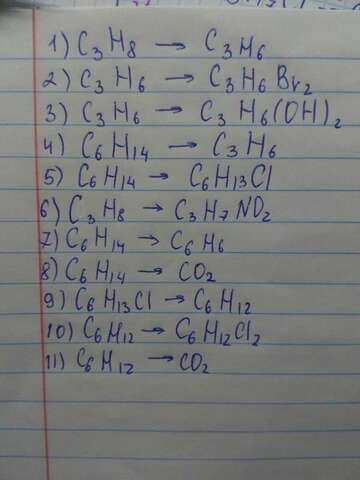 1) C₃H₈ → C₃H₆
2) C₃H₆ → C₃H₆Br₂
3) C₃H₆ → C₃H₆(OH)₂
4) C₆H₁₄ → C₃H₆
5) C₆H₁₄ → C₆H₁₃Cl
6) C₃H₈ → C₃H₇NO₂
7) C₆H₁₄ → C₆H₆
8) C₆H₁₄ → CO₂
9) C₆H₁₃Cl → C₆H₁₂
10) C₆H₁₂ → C₆H₁₂Cl₂
11) C₆H₁₂ → CO₂